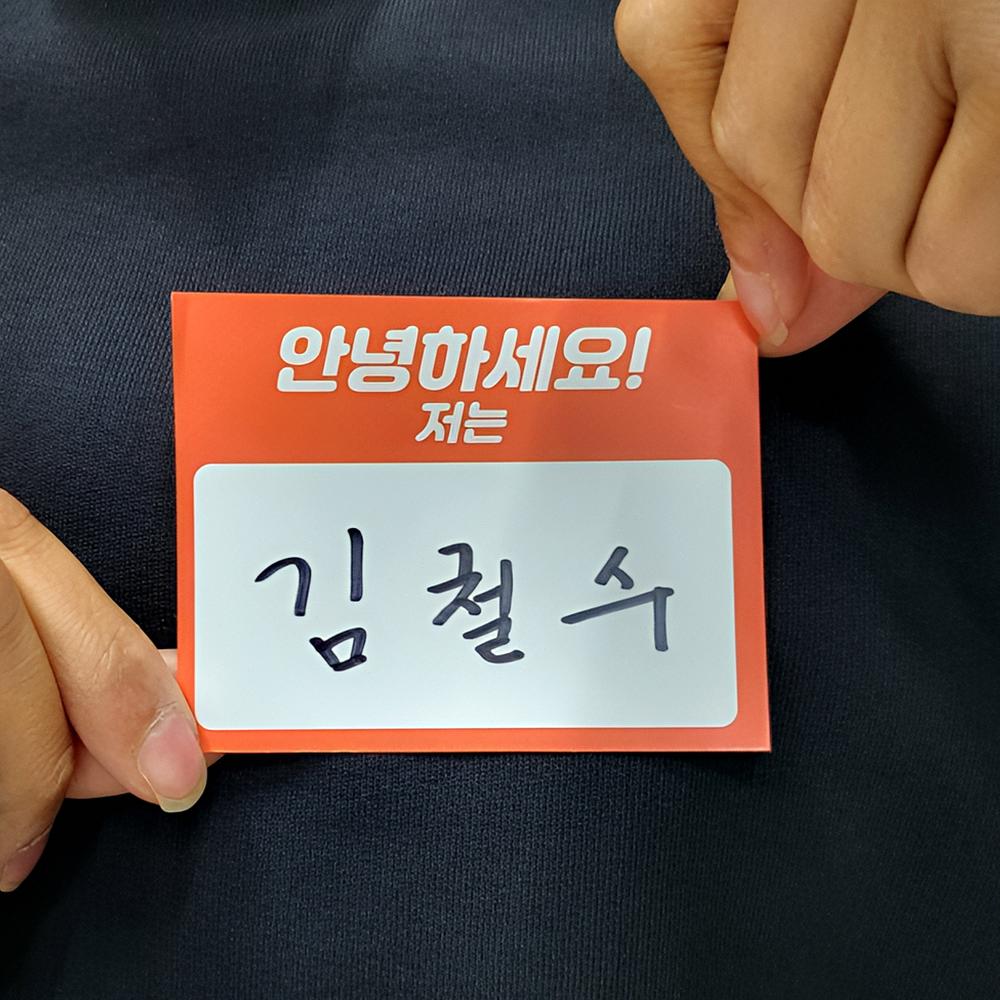 안녕하세요!
저는
김철수